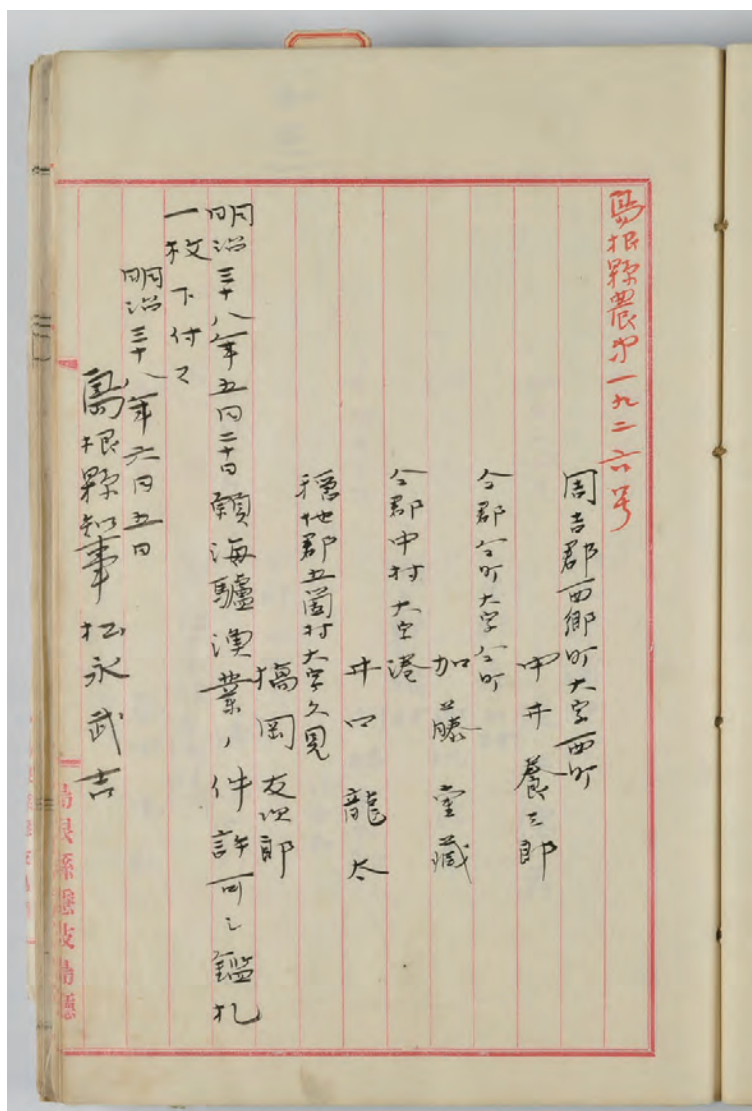 島根縣農第一九二六号
周吉郡西郷町大字西町
中井養三郎
仝郡仝町大字仝町
加藤重藏
仝郡中村大字港
井口龍太
穏地郡五箇村大字久見
橋岡友次郎
明治三十八年五月二十日願海驢漁業ノ件許可シ鑑札
一枚下付ス
明治三十八年六月五日
島根縣知事松永武吉
島根縣隠岐島廳